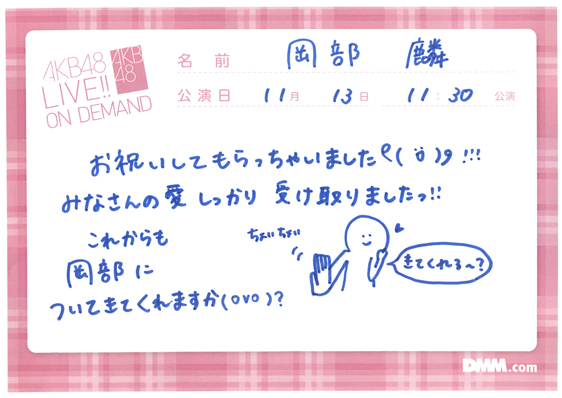 AKB48
LIVE!!
ON DEMAND
AKB
48
名前 岡部 麟
公演日 11月 13日 11:30 公演
お祝いしてもらっちゃいました९( ö )و !!!
みなさんの愛 しっかり 受け取りましたっ!!
これからも
岡部に
ついてきてくれますか(ovo)?
ちょいちょい
きてくれる〜?
DMM.com